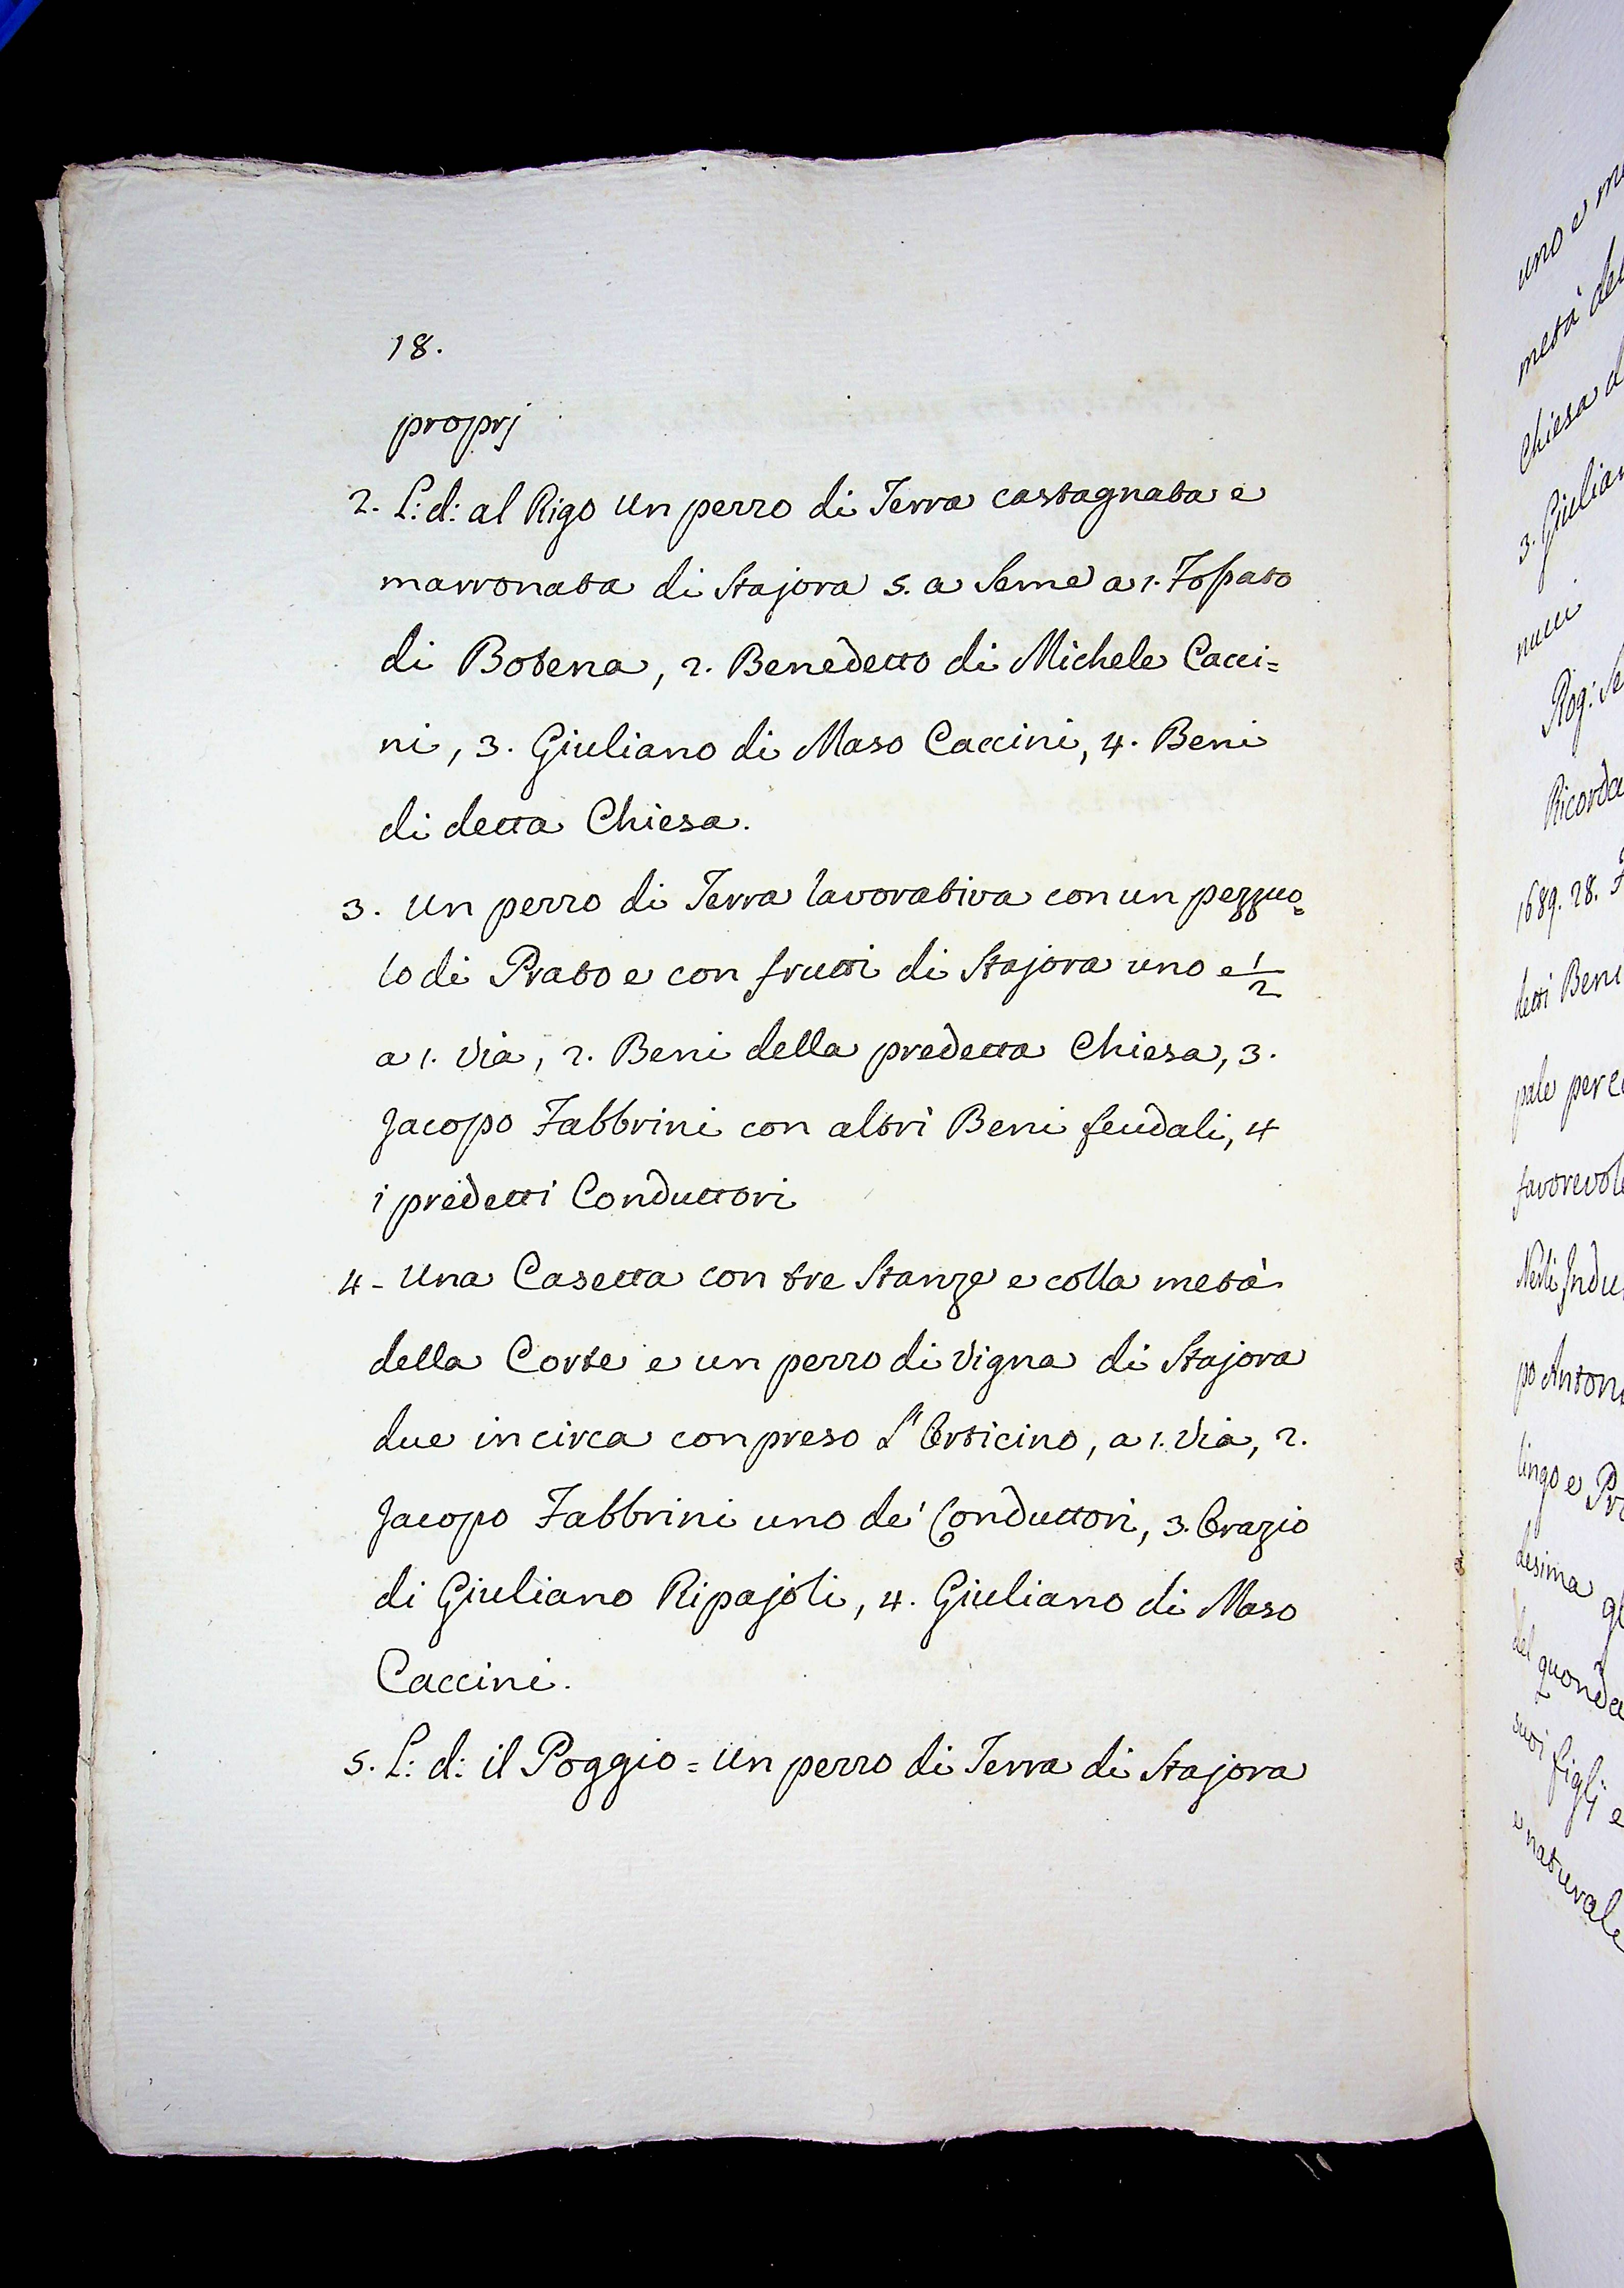 18.
proprj
2. L: d: al Rigo Un pezzo di Terra castagnata e
marronata di Stajora 5. a Seme a 1. Fossato
di Botena, 2. Benedetto di Michele Cacci=
ni, 3. Giuliano di Maso Caccini, 4. Beni
di detta Chiesa.
3. Un pezzo di Terra lavorativa con un pezzuo=
lo di Prato e con frutti di Stajora uno e 1/2
a 1. Via, 2. Beni della predetta Chiesa, 3.
Jacopo Fabbrini con altri Beni feudali, 4
i predetti Conduttori
4 - Una Casetta con tre Stanze e colla metà
della Corte e un pezzo di Vigna di Stajora
due incirca conpreso L'Orticino, a 1. Via, 2.
Jacopo Fabbrini uno de' Conduttori, 3. Orazio
di Giuliano Ripajoli, 4. Giuliano di Maso
Caccini.
5. L: d: il Poggio = Un pezzo di Terra di Stajora
uno e
metà
Chiesa
3.
nucci
Rog:
1689. 28.
detti Beni
pale per
lingo e
desima
del
suoi figlj e
naturale